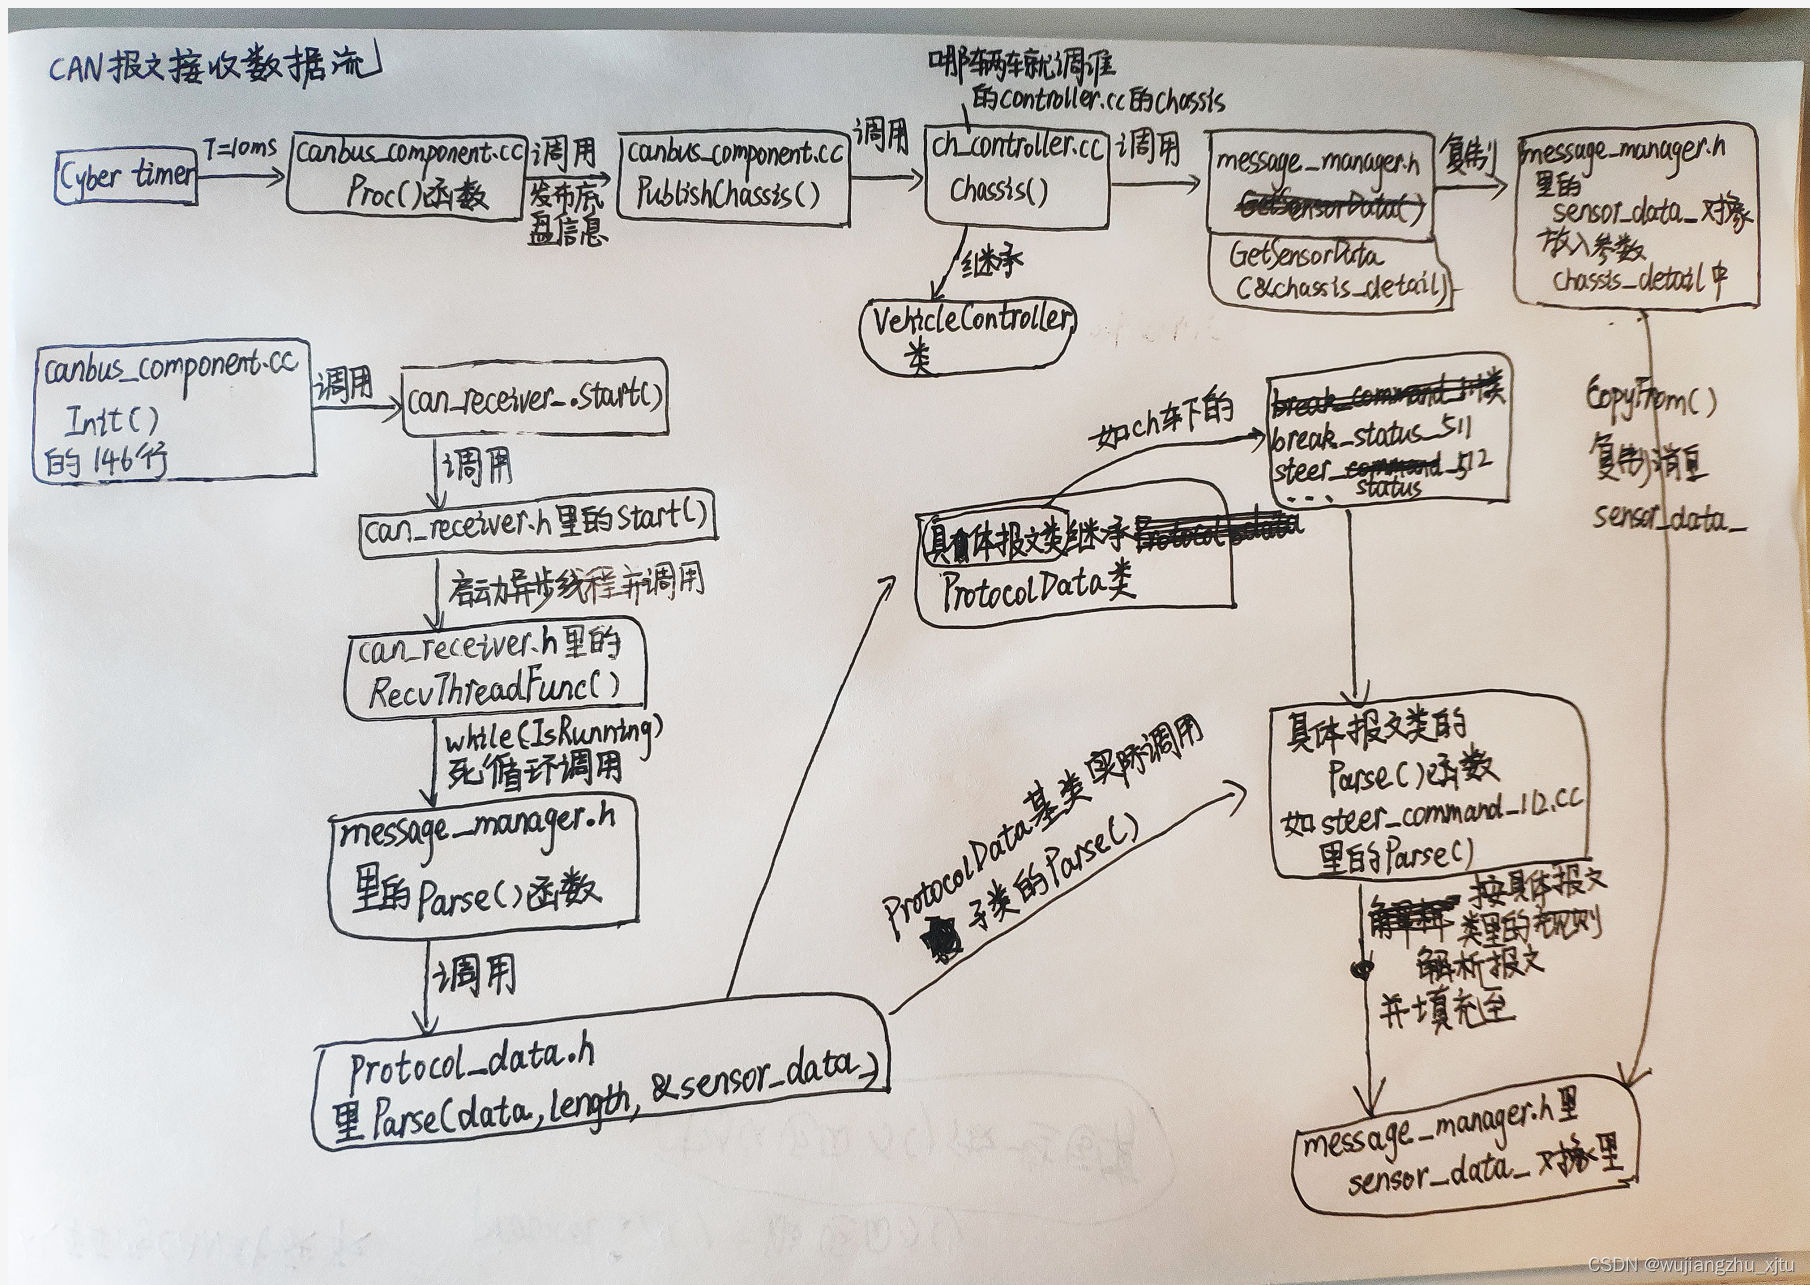 CAN报文接收数据流
哪辆车就调谁
的controller.cc的chassis
Cyber timer
T=10ms
canbus_component.cc
Proc()函数
调用
发布底
盘信息
canbus_component.cc
PublishChassis()
调用
ch_controller.cc
Chassis()
调用
message_manager.h
GetSensorData()
GetSensorData
(&chassis_detail)
复制
message_manager.h
里的
sensor_data_对象
放入参数
chassis_detail中
继承
VehicleController
类
canbus_component.cc
Init()
的146行
调用
can_receiver_.Start()
调用
can_receiver.h里的Start()
启动异步线程并调用
can_receiver.h里的
RecvThreadFunc()
while(IsRunning)
死循环调用
message_manager.h
里的Parse()函数
调用
Protocol_data.h
里Parse(data,length,&sensor_data_)
如ch车下的
break_command_111类
break_status_511
steer_command_512
status
...
具体报文类继承Protocol_data
ProtocolData类
CopyFrom()
复制消息
sensor_data_
ProtocolData基类实际调用
子类的Parse()
具体报文类的
Parse()函数
如steer_command_112.cc
里的Parse()
解析 按具体报文
类里的规则
解析报文
并填充至
message_manager.h里
sensor_data_对象里
CSDN @wujiangzhu_xjtu